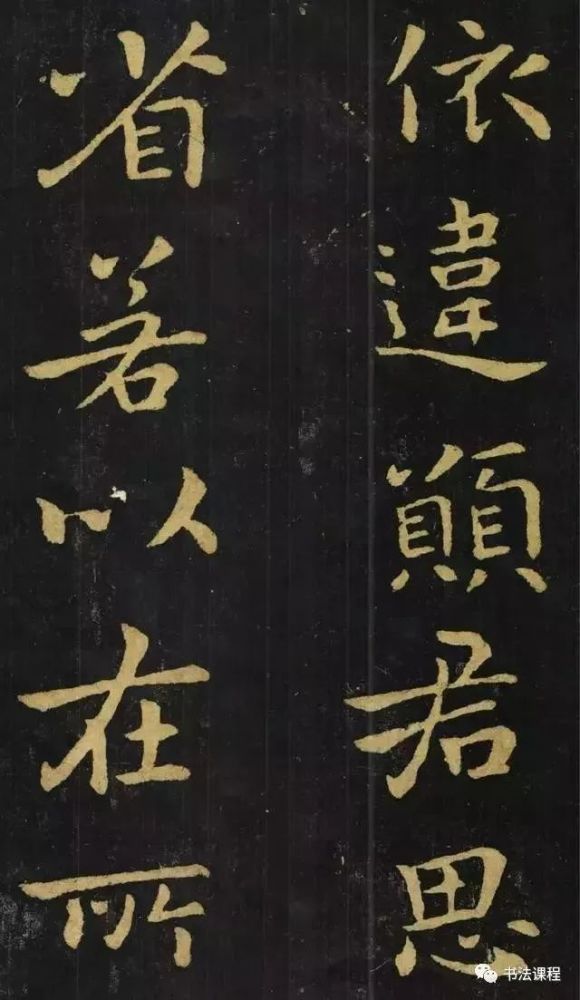 依違願君思
省若以在所
书法课程